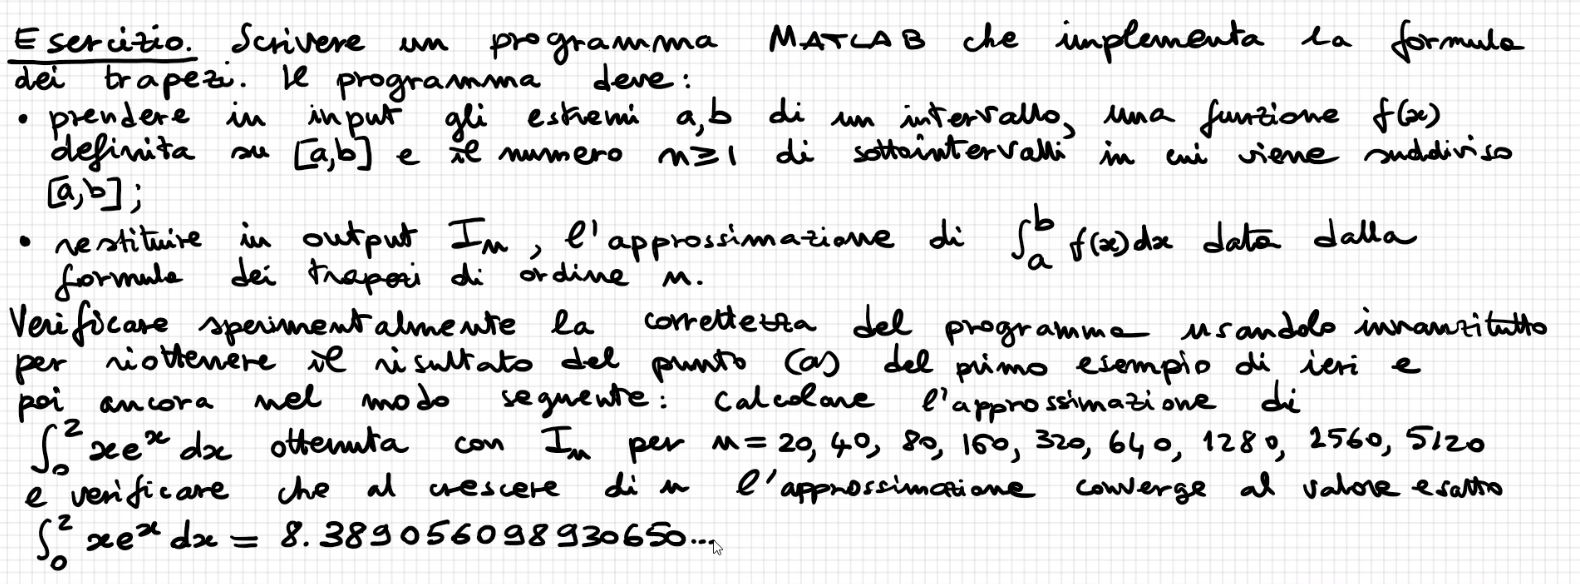 Esercizio. Scrivere un programma MATLAB che implementa la formula
dei trapezi. Il programma deve:
• prendere in input gli estremi a,b di un intervallo, una funzione f(x)
definita su [a,b] e il numero n≥1 di sottointervalli in cui viene suddiviso
[a,b];
• restituire in output Iₙ, l'approssimazione di ∫ₐᵇ f(x)dx data dalla
formula dei trapezi di ordine n.
Verificare sperimentalmente la correttezza del programma usandolo innanzitutto
per riottenere il risultato del punto (a) del primo esempio di ieri e
poi ancora nel modo seguente: calcolare l'approssimazione di
∫₀² xeˣ dx ottenuta con Iₙ per n = 20, 40, 80, 160, 320, 640, 1280, 2560, 5120
e verificare che al crescere di n l'approssimazione converge al valore esatto
∫₀² xeˣ dx = 8.389056098930650...